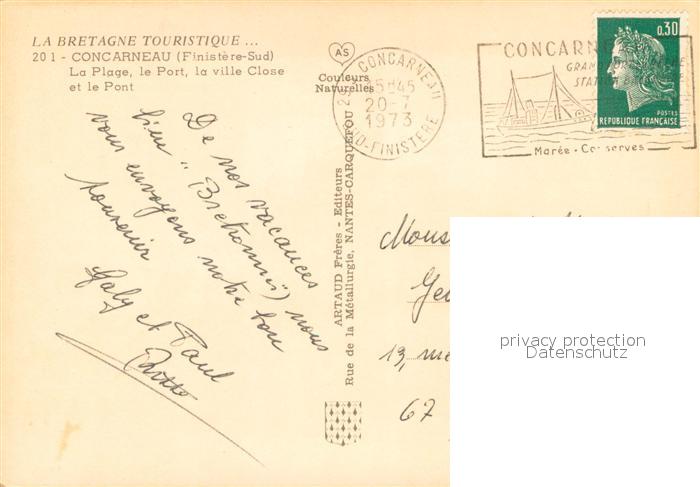 LA BRETAGNE TOURISTIQUE ...
20 1 - CONCARNEAU (Finistère-Sud)
La Plage, le Port, la ville Close
et le Pont
AS
Couleurs
Naturelles
CONCARNEAU
15H45
20-7
1973
SUD-FINISTERE
CONCARN
STAT
Marée - Conserves
0,30
POSTES
REPUBLIQUE FRANÇAISE
De nos vacances
bien "Bretonnes") nous
vous envoyons notre bon
souvenir
Gaby et Paul
ARTAUD Frères - Editeurs
Rue de la Métallurgie, NANTES-CARQUEFOU
Mons
Ge
13, rue
67
privacy protection
Datenschutz